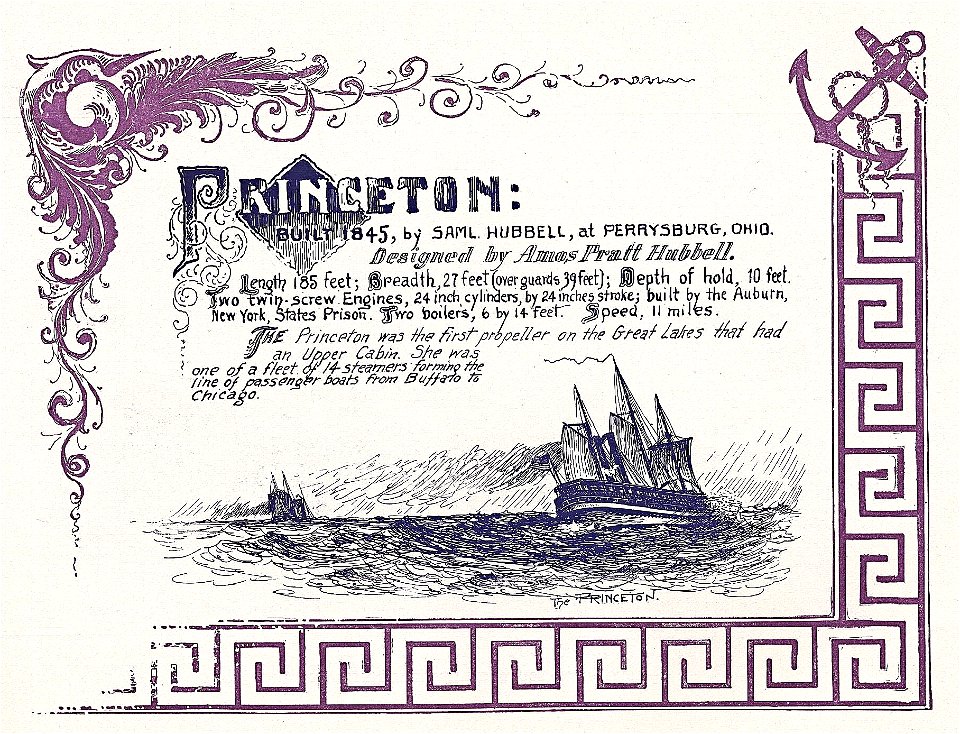 PRINCETON:
BUILT 1845, by SAML. HUBBELL, at PERRYSBURG, OHIO.
Designed by Amos Pratt Hubbell.
Length 185 feet; Breadth, 27 feet (over guards 39 feet); Depth of hold, 10 feet.
Two twin-screw Engines, 24 inch cylinders, by 24 inches stroke; built by the Auburn,
New York, States Prison. Two boilers, 6 by 14 feet. Speed, 11 miles.
THE Princeton was the first propeller on the Great Lakes that had
an Upper Cabin. She was
one of a fleet of 14 steamers forming the
line of passenger boats from Buffalo to
Chicago.
The PRINCETON.